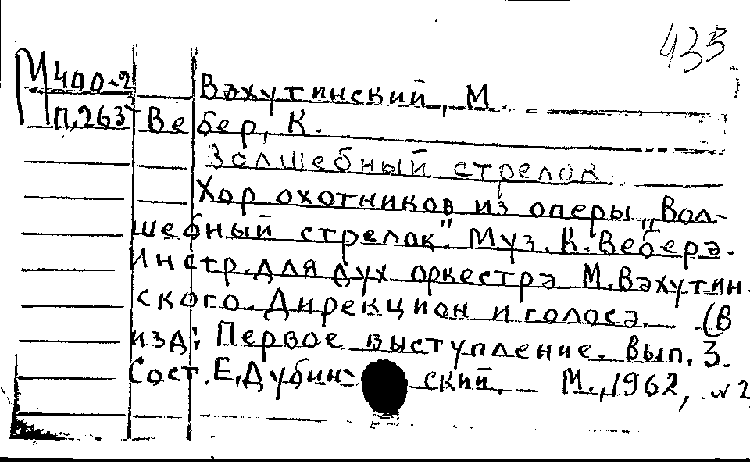 433
М400-2 Вахутинский, М.
П.263 Вебер, К.
Волшебный стрелок
Хор охотников из оперы „Вол-
шебный стрелок". Муз. К. Вебера.
Инстр. для дух оркестра М. Вахутин
ского. Дирекцион и голоса. (В
изд: Первое выступление. Вып. 3.
Сост. Е. Дубин- ский. М., 1962, №2